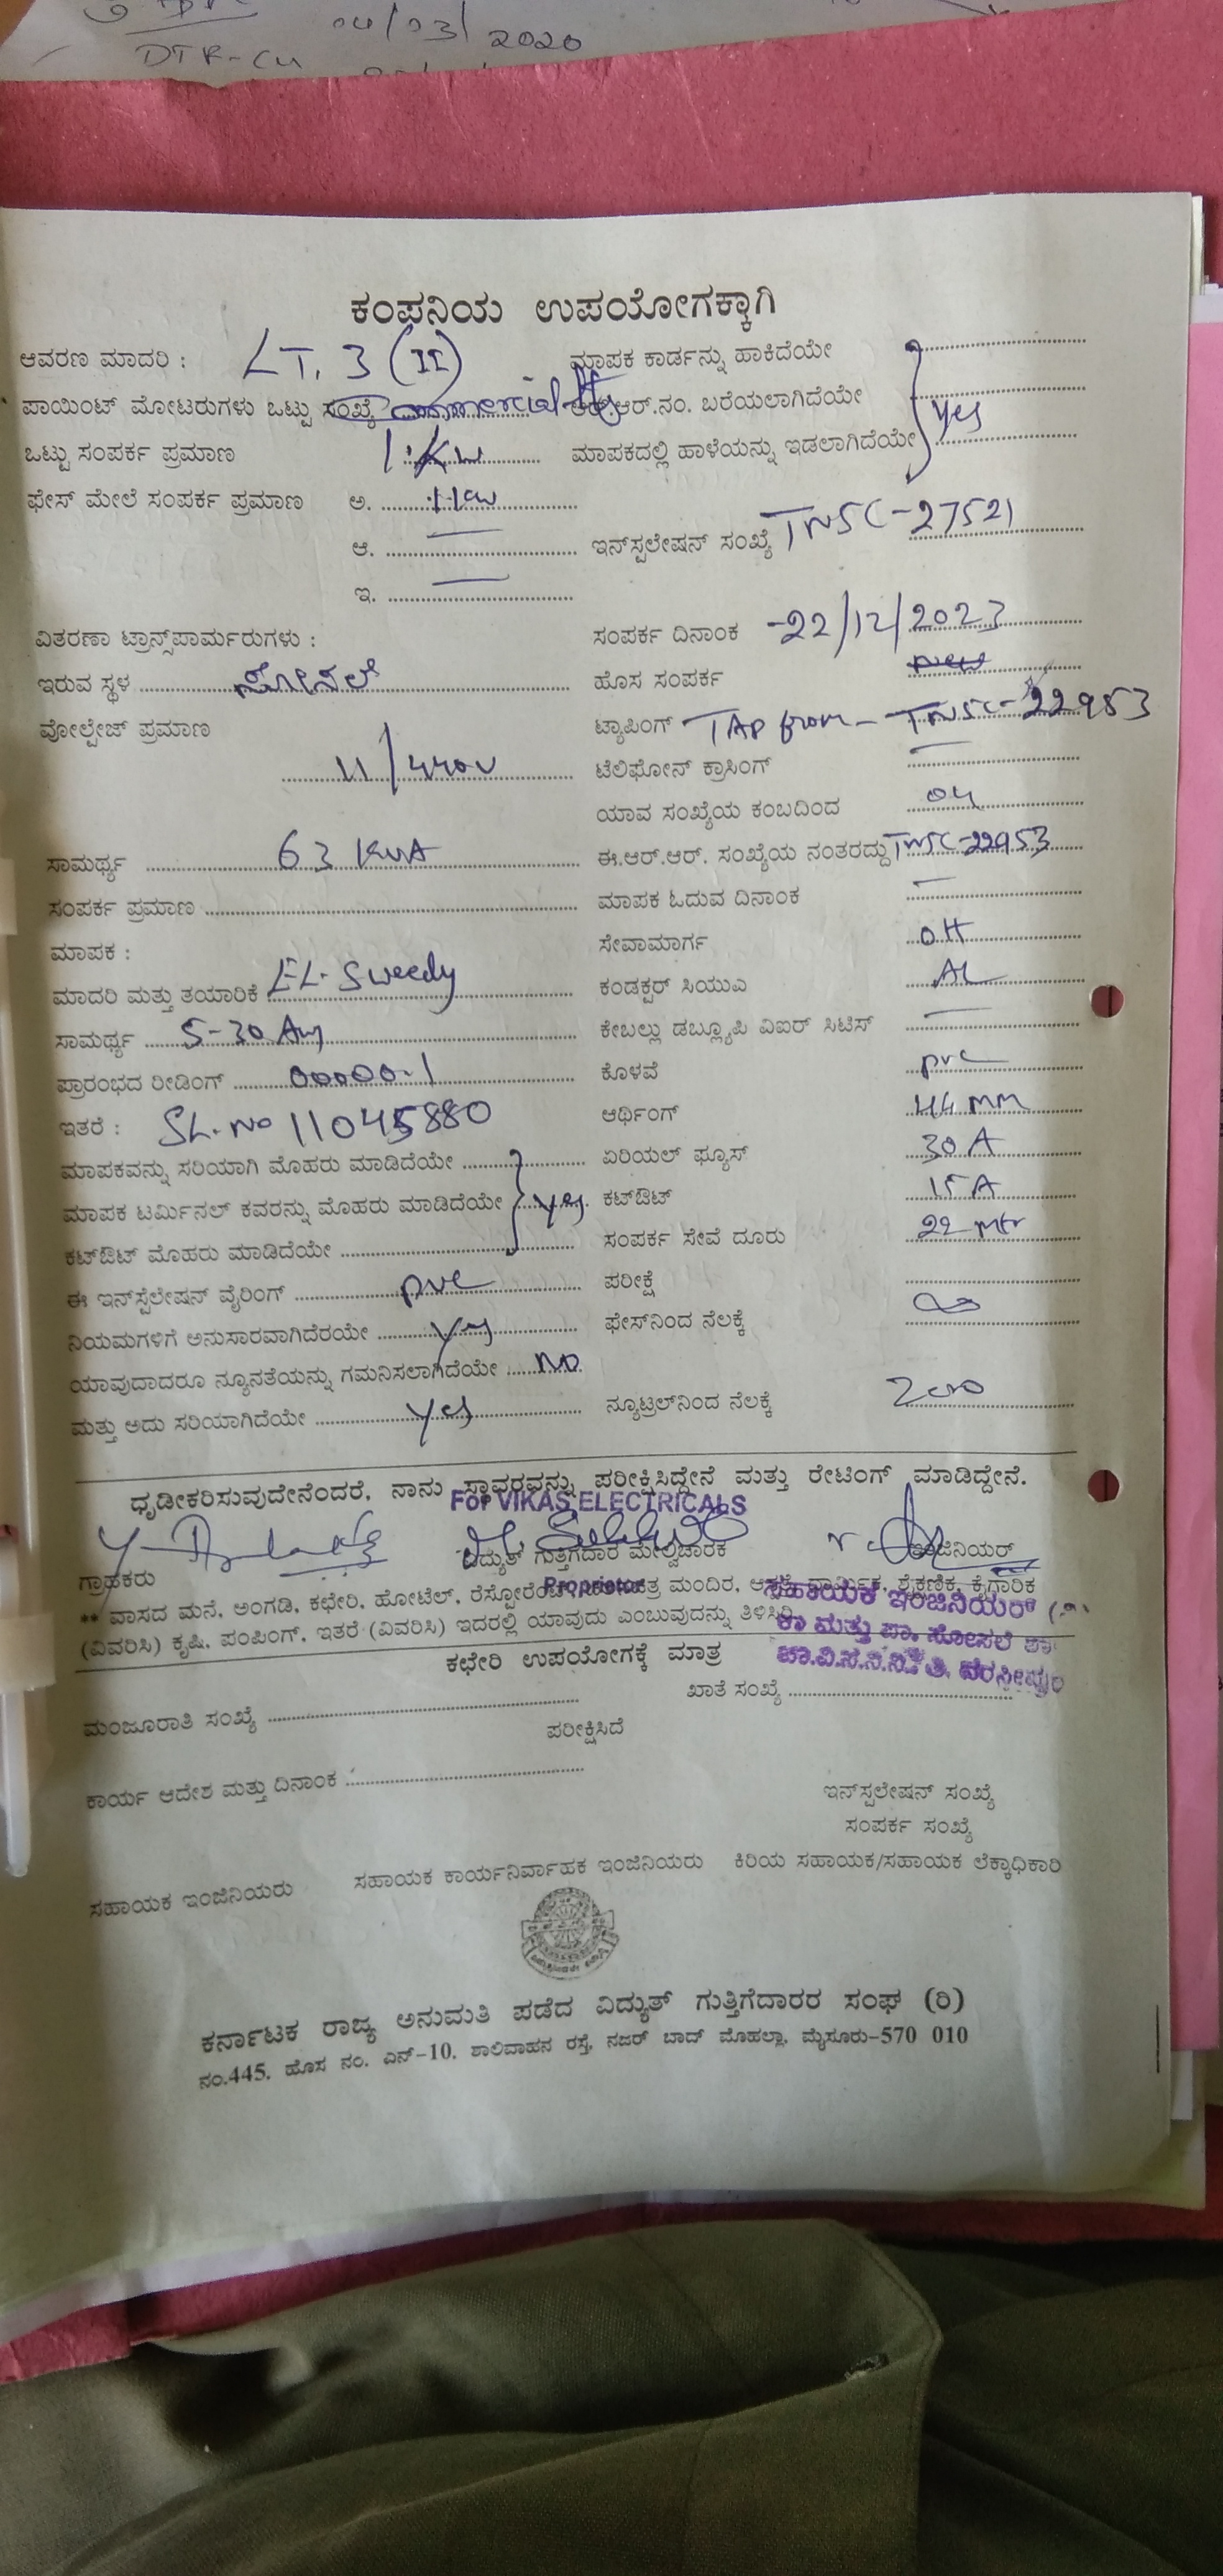 04/03/2020
DTR-CU
ಕಂಪನಿಯ ಉಪಯೋಗಕ್ಕಾಗಿ
ಆವರಣ ಮಾದರಿ : LT. 3 (II) ಮಾಪಕ ಕಾರ್ಡನ್ನು ಹಾಕಿದೆಯೇ
ಪಾಯಿಂಟ್ ಮೋಟರುಗಳು ಒಟ್ಟು ಸಂಖ್ಯೆ Commercial ಆರ್.ಆರ್.ನಂ. ಬರೆಯಲಾಗಿದೆಯೇ yes
ಒಟ್ಟು ಸಂಪರ್ಕ ಪ್ರಮಾಣ 1 KW ಮಾಪಕದಲ್ಲಿ ಹಾಳೆಯನ್ನು ಇಡಲಾಗಿದೆಯೇ
ಫೇಸ್ ಮೇಲೆ ಸಂಪರ್ಕ ಪ್ರಮಾಣ ಅ. 1kw
ಆ. — ಇನ್‌ಸ್ಟಲೇಷನ್ ಸಂಖ್ಯೆ TNSC-27521
ಇ. —
ವಿತರಣಾ ಟ್ರಾನ್ಸ್‌ಪಾರ್ಮರುಗಳು : ಸಂಪರ್ಕ ದಿನಾಂಕ -22/12/2023
ಇರುವ ಸ್ಥಳ ಸೋಸಲೆ ಹೊಸ ಸಂಪರ್ಕ new
ವೋಲ್ಟೇಜ್ ಪ್ರಮಾಣ ಟ್ಯಾಪಿಂಗ್ TAP from - TNSC-22953
11/440V ಟೆಲಿಫೋನ್ ಕ್ರಾಸಿಂಗ್ —
ಯಾವ ಸಂಖ್ಯೆಯ ಕಂಬದಿಂದ 04
ಸಾಮರ್ಥ್ಯ 63 KVA ಈ.ಆರ್.ಆರ್. ಸಂಖ್ಯೆಯ ನಂತರದ್ದು TNSC-22953
ಸಂಪರ್ಕ ಪ್ರಮಾಣ ಮಾಪಕ ಓದುವ ದಿನಾಂಕ —
ಮಾಪಕ : ಸೇವಾಮಾರ್ಗ OH
ಮಾದರಿ ಮತ್ತು ತಯಾರಿಕೆ EL-Sweedy ಕಂಡಕ್ಟರ್ ಸಿಯುಎ AL
ಸಾಮರ್ಥ್ಯ 5-30 Am ಕೇಬಲ್ಲು ಡಬ್ಲ್ಯೂಪಿ ವಿಐರ್ ಸಿಟಿಸ್ —
ಪ್ರಾರಂಭದ ರೀಡಿಂಗ್ 00000.1 ಕೊಳವೆ pvc
ಇತರೆ : SL.No 11045880 ಆರ್ಥಿಂಗ್ 44 mm
ಮಾಪಕವನ್ನು ಸರಿಯಾಗಿ ಮೊಹರು ಮಾಡಿದೆಯೇ ಏರಿಯಲ್ ಫ್ಯೂಸ್ 30 A
ಮಾಪಕ ಟರ್ಮಿನಲ್ ಕವರನ್ನು ಮೊಹರು ಮಾಡಿದೆಯೇ yes ಕಟ್‌ಔಟ್ 15 A
ಕಟ್‌ಔಟ್ ಮೊಹರು ಮಾಡಿದೆಯೇ ಸಂಪರ್ಕ ಸೇವೆ ದೂರು 22 mtr
ಈ ಇನ್‌ಸ್ಟಲೇಷನ್ ವೈರಿಂಗ್ pvc ಪರೀಕ್ಷೆ
ನಿಯಮಗಳಿಗೆ ಅನುಸಾರವಾಗಿದೆರಯೇ yes ಫೇಸ್‌ನಿಂದ ನೆಲಕ್ಕೆ ∞
ಯಾವುದಾದರೂ ನ್ಯೂನತೆಯನ್ನು ಗಮನಿಸಲಾಗಿದೆಯೇ No
ಮತ್ತು ಅದು ಸರಿಯಾಗಿದೆಯೇ yes ನ್ಯೂಟ್ರಲ್‌ನಿಂದ ನೆಲಕ್ಕೆ Zero
ಧೃಡೀಕರಿಸುವುದೇನೆಂದರೆ, ನಾನು ಸ್ಥಾವರವನ್ನು ಪರೀಕ್ಷಿಸಿದ್ದೇನೆ ಮತ್ತು ರೇಟಿಂಗ್ ಮಾಡಿದ್ದೇನೆ.
For VIKAS ELECTRICALS
ಗ್ರಾಹಕರು ವಿದ್ಯುತ್ ಗುತ್ತಿಗೆದಾರ ಮೇಲ್ವಿಚಾರಕ ಇಂಜಿನಿಯರ್
Proprietor
** ವಾಸದ ಮನೆ, ಅಂಗಡಿ, ಕಛೇರಿ, ಹೋಟೆಲ್, ರೆಸ್ಟೋರೆಂಟ್, ಮಂದಿರ, ಧಾರ್ಮಿಕ, ಶೈಕ್ಷಣಿಕ, ಕೈಗಾರಿಕ
(ವಿವರಿಸಿ) ಕೃಷಿ, ಪಂಪಿಂಗ್, ಇತರೆ (ವಿವರಿಸಿ) ಇದರಲ್ಲಿ ಯಾವುದು ಎಂಬುವುದನ್ನು ತಿಳಿಸಿರಿ
ಸಹಾಯಕ ಇಂಜಿನಿಯರ್
ಕಾ ಮತ್ತು ಪಾ. ಸೋಸಲೆ ಶಾ
ಚಾ.ವಿ.ಸ.ನಿ.ನಿ. ತಿ. ನರಸೀಪುರ
ಕಛೇರಿ ಉಪಯೋಗಕ್ಕೆ ಮಾತ್ರ
ಮಂಜೂರಾತಿ ಸಂಖ್ಯೆ ಖಾತೆ ಸಂಖ್ಯೆ
ಪರೀಕ್ಷಿಸಿದೆ
ಕಾರ್ಯ ಆದೇಶ ಮತ್ತು ದಿನಾಂಕ
ಇನ್‌ಸ್ಟಲೇಷನ್ ಸಂಖ್ಯೆ
ಸಂಪರ್ಕ ಸಂಖ್ಯೆ
ಸಹಾಯಕ ಇಂಜಿನಿಯರು ಸಹಾಯಕ ಕಾರ್ಯನಿರ್ವಾಹಕ ಇಂಜಿನಿಯರು ಕಿರಿಯ ಸಹಾಯಕ/ಸಹಾಯಕ ಲೆಕ್ಕಾಧಿಕಾರಿ
ಕರ್ನಾಟಕ ರಾಜ್ಯ ಅನುಮತಿ ಪಡೆದ ವಿದ್ಯುತ್ ಗುತ್ತಿಗೆದಾರರ ಸಂಘ (ರಿ)
ನಂ.445, ಹೊಸ ನಂ. ಎನ್-10, ಶಾಲಿವಾಹನ ರಸ್ತೆ, ನಜರ್ ಬಾದ್ ಮೊಹಲ್ಲಾ, ಮೈಸೂರು-570 010